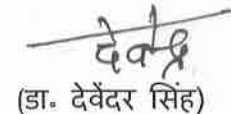 देवेंद्र
(डा॰ देवेंदर सिंह)